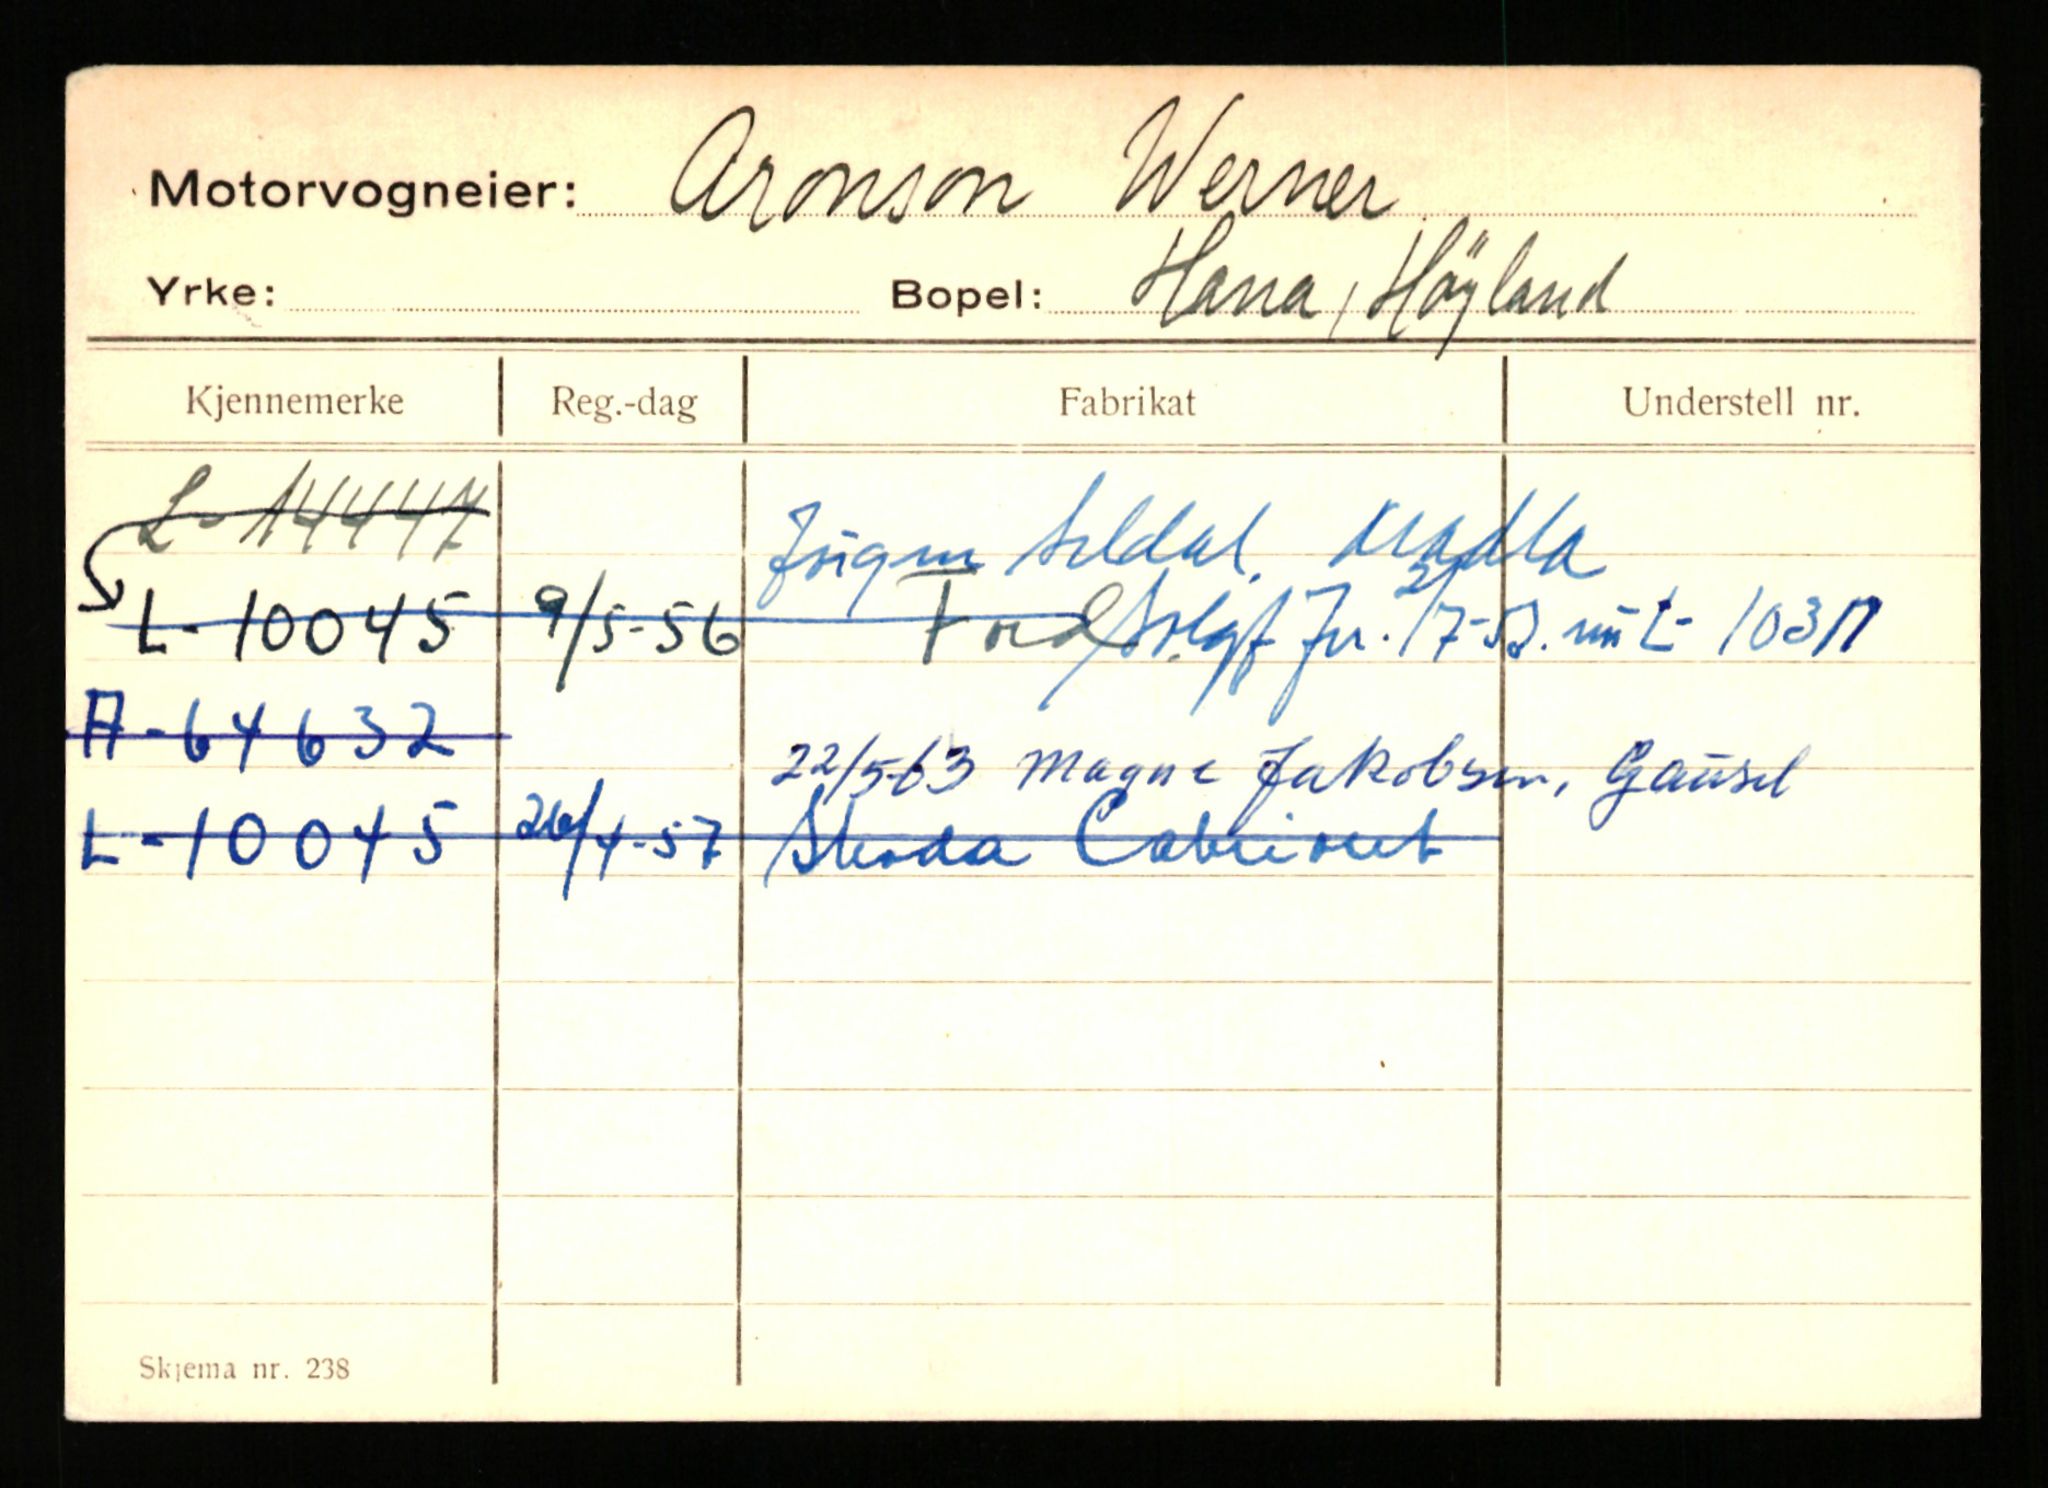 Motorvogneier: Aronson Werner
Yrke: Bopel: Hana, Høyland
Kjennemerke Reg.-dag Fabrikat Understell nr.
L-14447
Jørgen Seldal, Madla
L-10045 9/5-56 Ford Solgt
A-64632
22/5-63 Magne Jakobsen, Gausel
L-10045 26/4-57 Skoda Cabriolet
Skjema nr. 238